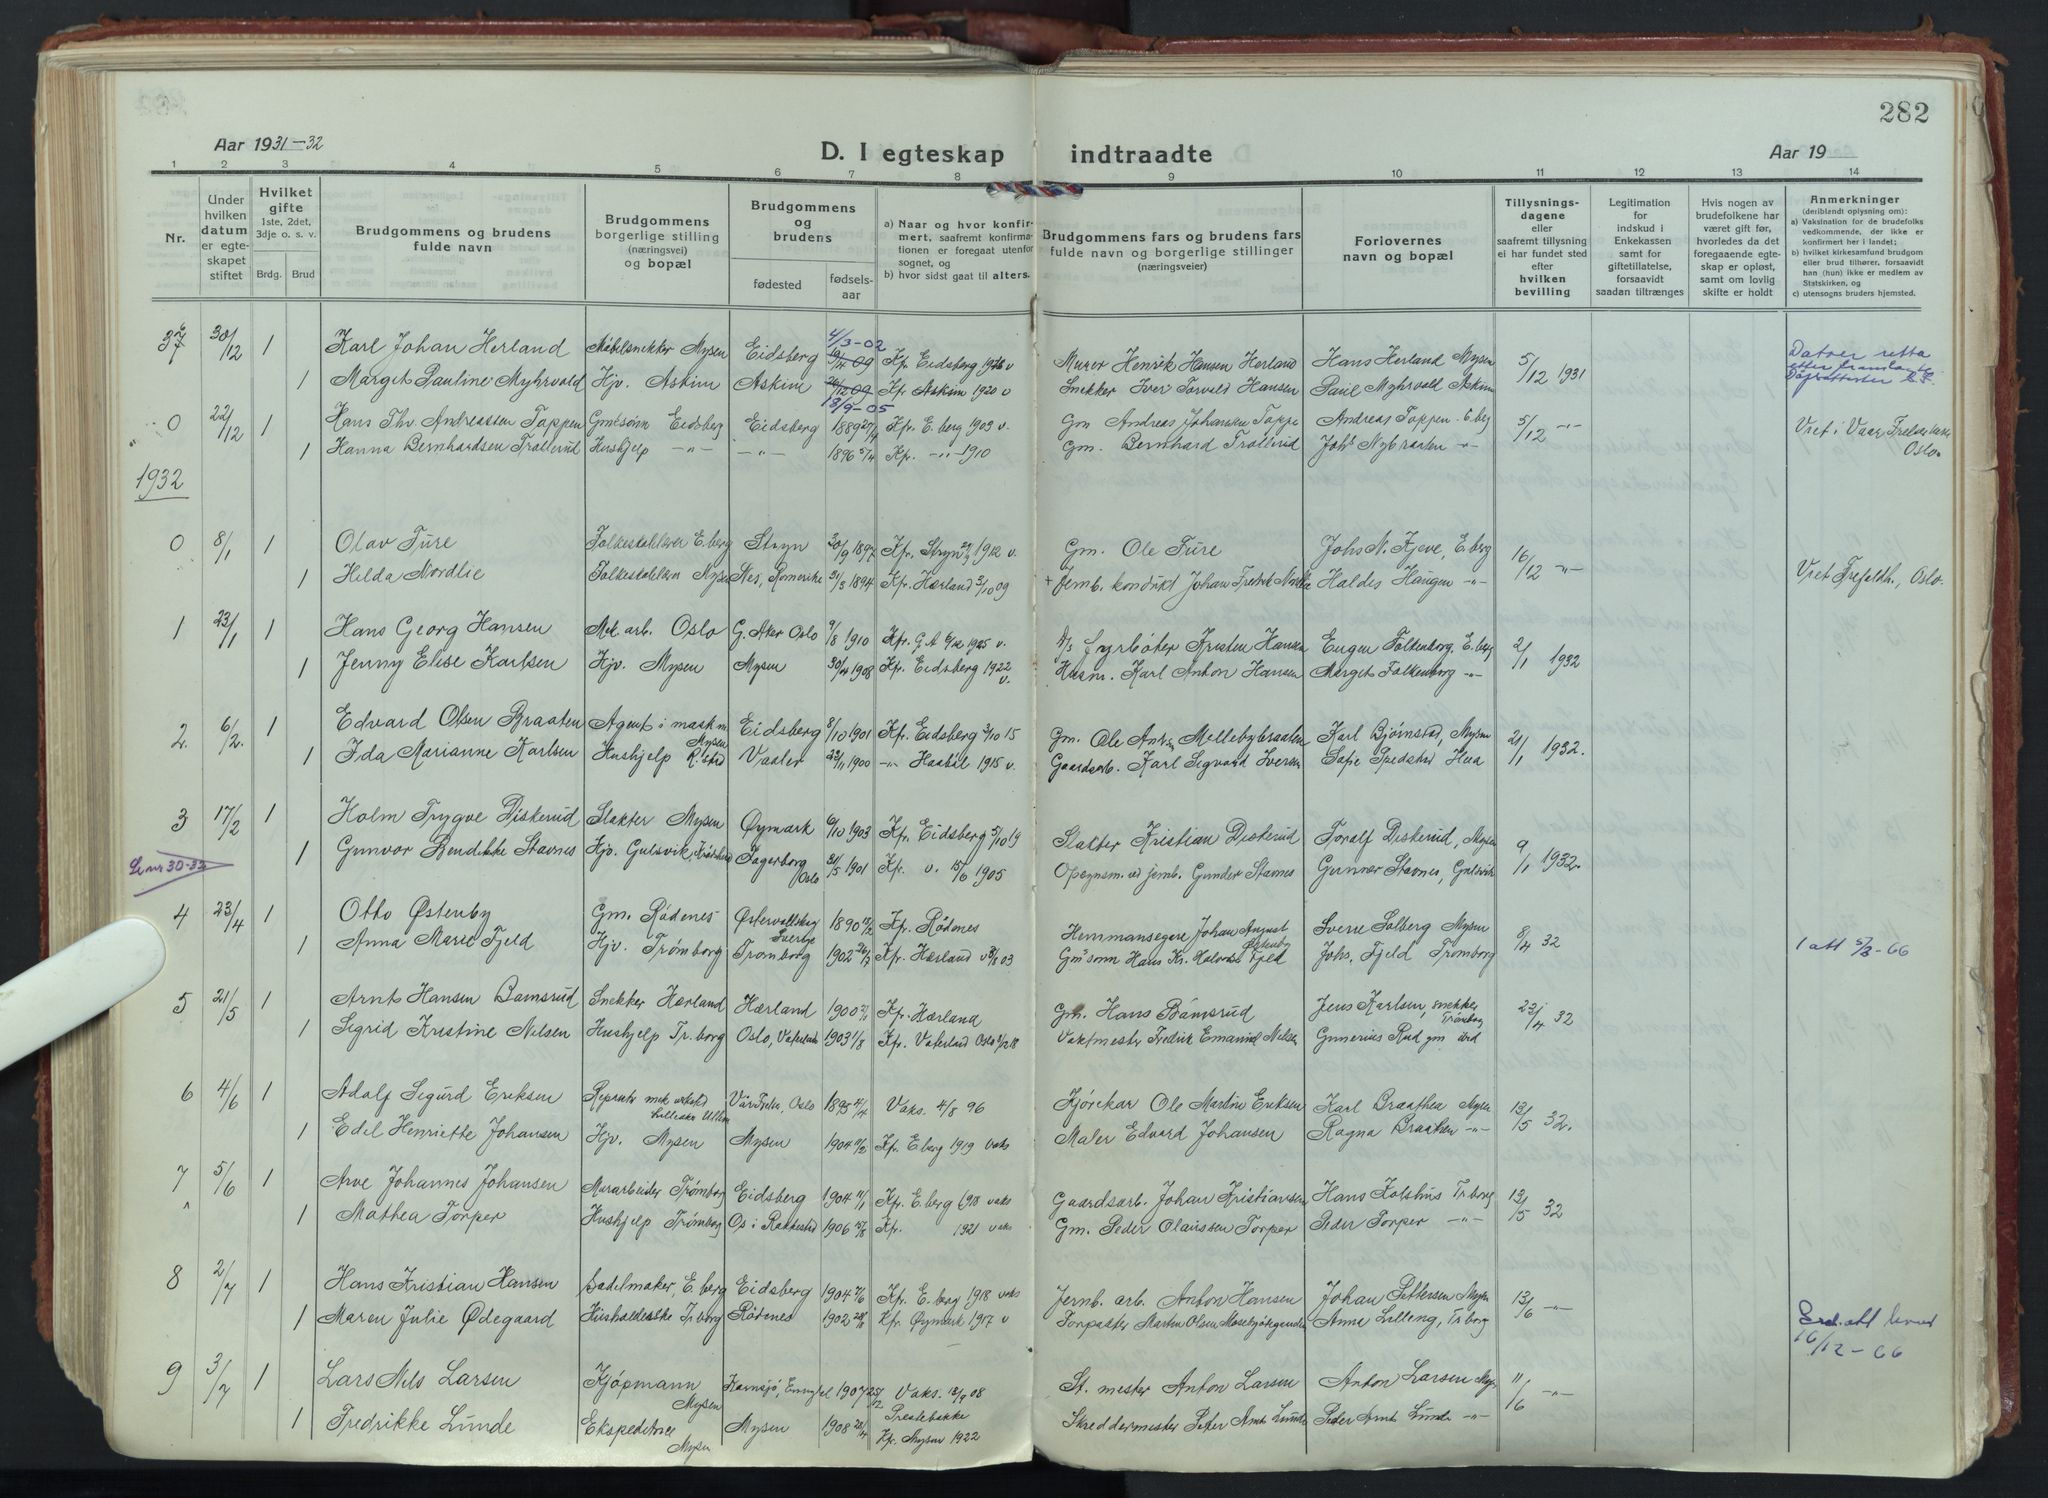 282
Aar 1931-32
D. I egteskap indtraadte
Aar 19
1 2 3 4 5 6 7 8 9 10 11 12 13 14
Nr.
Under hvilken datum er egteskapet stiftet
Hvilket gifte 1ste, 2det, 3dje o. s. v.
Brdg. Brud
Brudgommens og brudens fulde navn
Brudgommens borgerlige stilling (næringsvei) og bopæl
Brudgommens og brudens
fødested
fødselsaar
a) Naar og hvor konfirmert, saafremt konfirmationen er foregaat utenfor sognet, og
b) hvor sidst gaat til alters.
Brudgommens fars og brudens fars fulde navn og borgerlige stillinger (næringsveier)
Forlovernes navn og bopæl
Tillysningsdagene eller saafremt tillysning ei har fundet sted efter hvilken bevilling
Legitimation for indskud i Enkekassen samt for giftetillatelse, forsaavidt saadan tiltrænges
Hvis nogen av brudefolkene har været gift før, hvorledes da det foregaaende egteskap er opløst, samt om lovlig skifte er holdt
Anmerkninger (deriblandt oplysning om):
a) Vaksination for de brudefolks vedkommende, der ikke er konfirmert her i landet;
b) hvilket kirkesamfund brudgom eller brud tilhører, forsaavidt han (hun) ikke er medlem av Statskirken, og
c) utensogns bruders hjemsted.
37 30/12 1 Karl Johan Herland Møbelsnekker Mysen Eidsberg 4/3-02 Kfr. Eidsberg v Murer Henrik Hansen Herland Hans Herland Mysen 5/12 1931 Datoer retta
1 Margit Pauline Myhrvold Hjv. Askim Askim 18/9-05 Kfr Askim 1920 v Snekker Iver Torvald Hansen Paul Myhrvold Askim
0 22/12 1 Hans Thv. Andreassen Toppen Gmdsønn Eidsberg Eidsberg 1889 Kfr E. berg 1903 v. Gm Andreas Johansen Toppe Andreas Toppen E. berg 5/12 -"- Oslo.
1 Hanna Bernhardsen Trollerud Hushjelp -"- -"- 1896 5/4 Kfr. -"- 1910 Gm. Bernhard Trollerud Johs Nybraaten -"-
1932
0 8/1 1 Olav Ture Folkeskolelærer E. berg Stryn 30/9 1897 Kfr. Stryn 1912 v. Gm. Ole Ture Johs N. Kjeve, E. berg 16/12 -"- Vret Trefoldh., Oslo.
1 Helda Nordlie Mysen Nes, Romerike 31/8 1894 Kfr. Hærland 3/10 09 + Jernb. kondukt Johan Fredrik Haldis Haugen -"-
1 23/1 1 Hans Georg Hansen Mek arb. Oslo G. Aker Oslo 9/8 1910 Kfr. G. A 1925 v. fyrbøter Kristen Hansen Eugen Folkenborg, E. berg 2/1 1932
1 Jenny Elise Karlsen Hjv. Mysen Mysen 30/4 1908 Kfr. Eidsberg 1922 v. Husm. Karl Anton Hansen Margit Folkenborg -"-
2. 6/2. 1 Edvard Olsen Braaten Agent i mask m. Mysen Eidsberg 8/10 1901 Kfr. Eidsberg 3/10 15 Gm. Ole Mellebybraaten Karl Bjørnstad, Mysen 21/1 1932.
1 Ida Marianne Karlsen Hushjelp Vaaler 23/11 1900 -"- Haabøl 1915 v. Gaardsarb. Karl Sigvard Iversen Sofie Spedstad
3 17/2 1 Holm Trygve Diskerud Slakter Mysen Øymark 6/10 1903 Kfr. Eidsberg 5/10 19 Slakter Kristian Diskerud Toralf Diskerud, Mysen 9/1 1932.
1 Gunvor Bendikke Stavnes Hjv. Gulsvik, Fagerborg Oslo 31/5 1901 Kfr. v. 15/6 1905 Opsynsm. ved jernb. Gunder Stavnes Gunnar Stavnes, Gulsvik
Se nr 30-32
4 23/4 1 Otto Østenby Gm. Rødenes Østervallskog Sverige 1890 Kfr. Rødenes Hemmansegere Johan August Østenby Sverre Solberg Mysen 8/4 32 1 att 5/3-66
1 Anna Marie Fjeld Hjv. Trømborg Trømborg 1902 Kfr. Hærland v 03 Gmsønn Hans Kr. Fjeld Johs. Fjeld Trømborg
5 21/5 1 Arnt Hansen Bamsrud Snekker Hærland Hærland 1900 Kfr. Hærland Gm. Hans Bamsrud Jens Karlsen, snekker Trømborg 23/4 32
1 Sigrid Kristine Nilsen Hushjelp Tr. borg Oslo, Vaterland 1903 1/8 Kfr. Vaterland Oslo 18 Vaktmester Fredrik Emanuel Nilsen Gunerius Rud gm
6 4/6 1 Adolf Sigurd Eriksen Vår Frels, Oslo 1895 Vaks. 4/8 96 Kjørekar Ole Martin Eriksen Karl Braathen Mysen 13/5 32.
1 Edel Henriette Johansen Hjv. Mysen Mysen 1904 Kfr. E berg 1919 vaks Maler Edvard Johansen Ragna Braathen -"-
7 5/6 1 Arve Johannes Johansen Murarbeider Trømborg Eidsberg 1904 Kfr. E. berg 1918 vaks Gaardsarb. Johan Kristiansen Hans Kolshus Tr borg 13/5 32
1 Mathea Torper Hushjelp Trømborg Os i Rakkestad 1906 Kfr. 1921 vaks Gm. Peder Olaussen Torper Peder Torper -"-
8 2/7 1 Hans Kristian Hansen Sadelmaker, E. berg Eidsberg 1904 Kfr. E. berg 1918 vaks Jernb. arb. Anton Hansen Johan Pettersen Mysen 13/6 -"-
1 Maren Julie Ødegaard Tr borg Rødenes 1902 Kfr Øymark 1917 v Martin Olsen Anne Lilleng, Tr borg 16/12-66
9 3/7 1 Lars Nils Larsen Kjøpmann Mysen Kornsjø, 1907 Vaks. 08 Prestebakke St. mester Anton Larsen Anton Larsen 11/6 -"-
1 Fredrikke Lunde Ekspeditrise Mysen Mysen 1908 Kfr. Mysen 1922 Skreddermester Peter Arnt Lunde Peder Arnt Lunde -"-